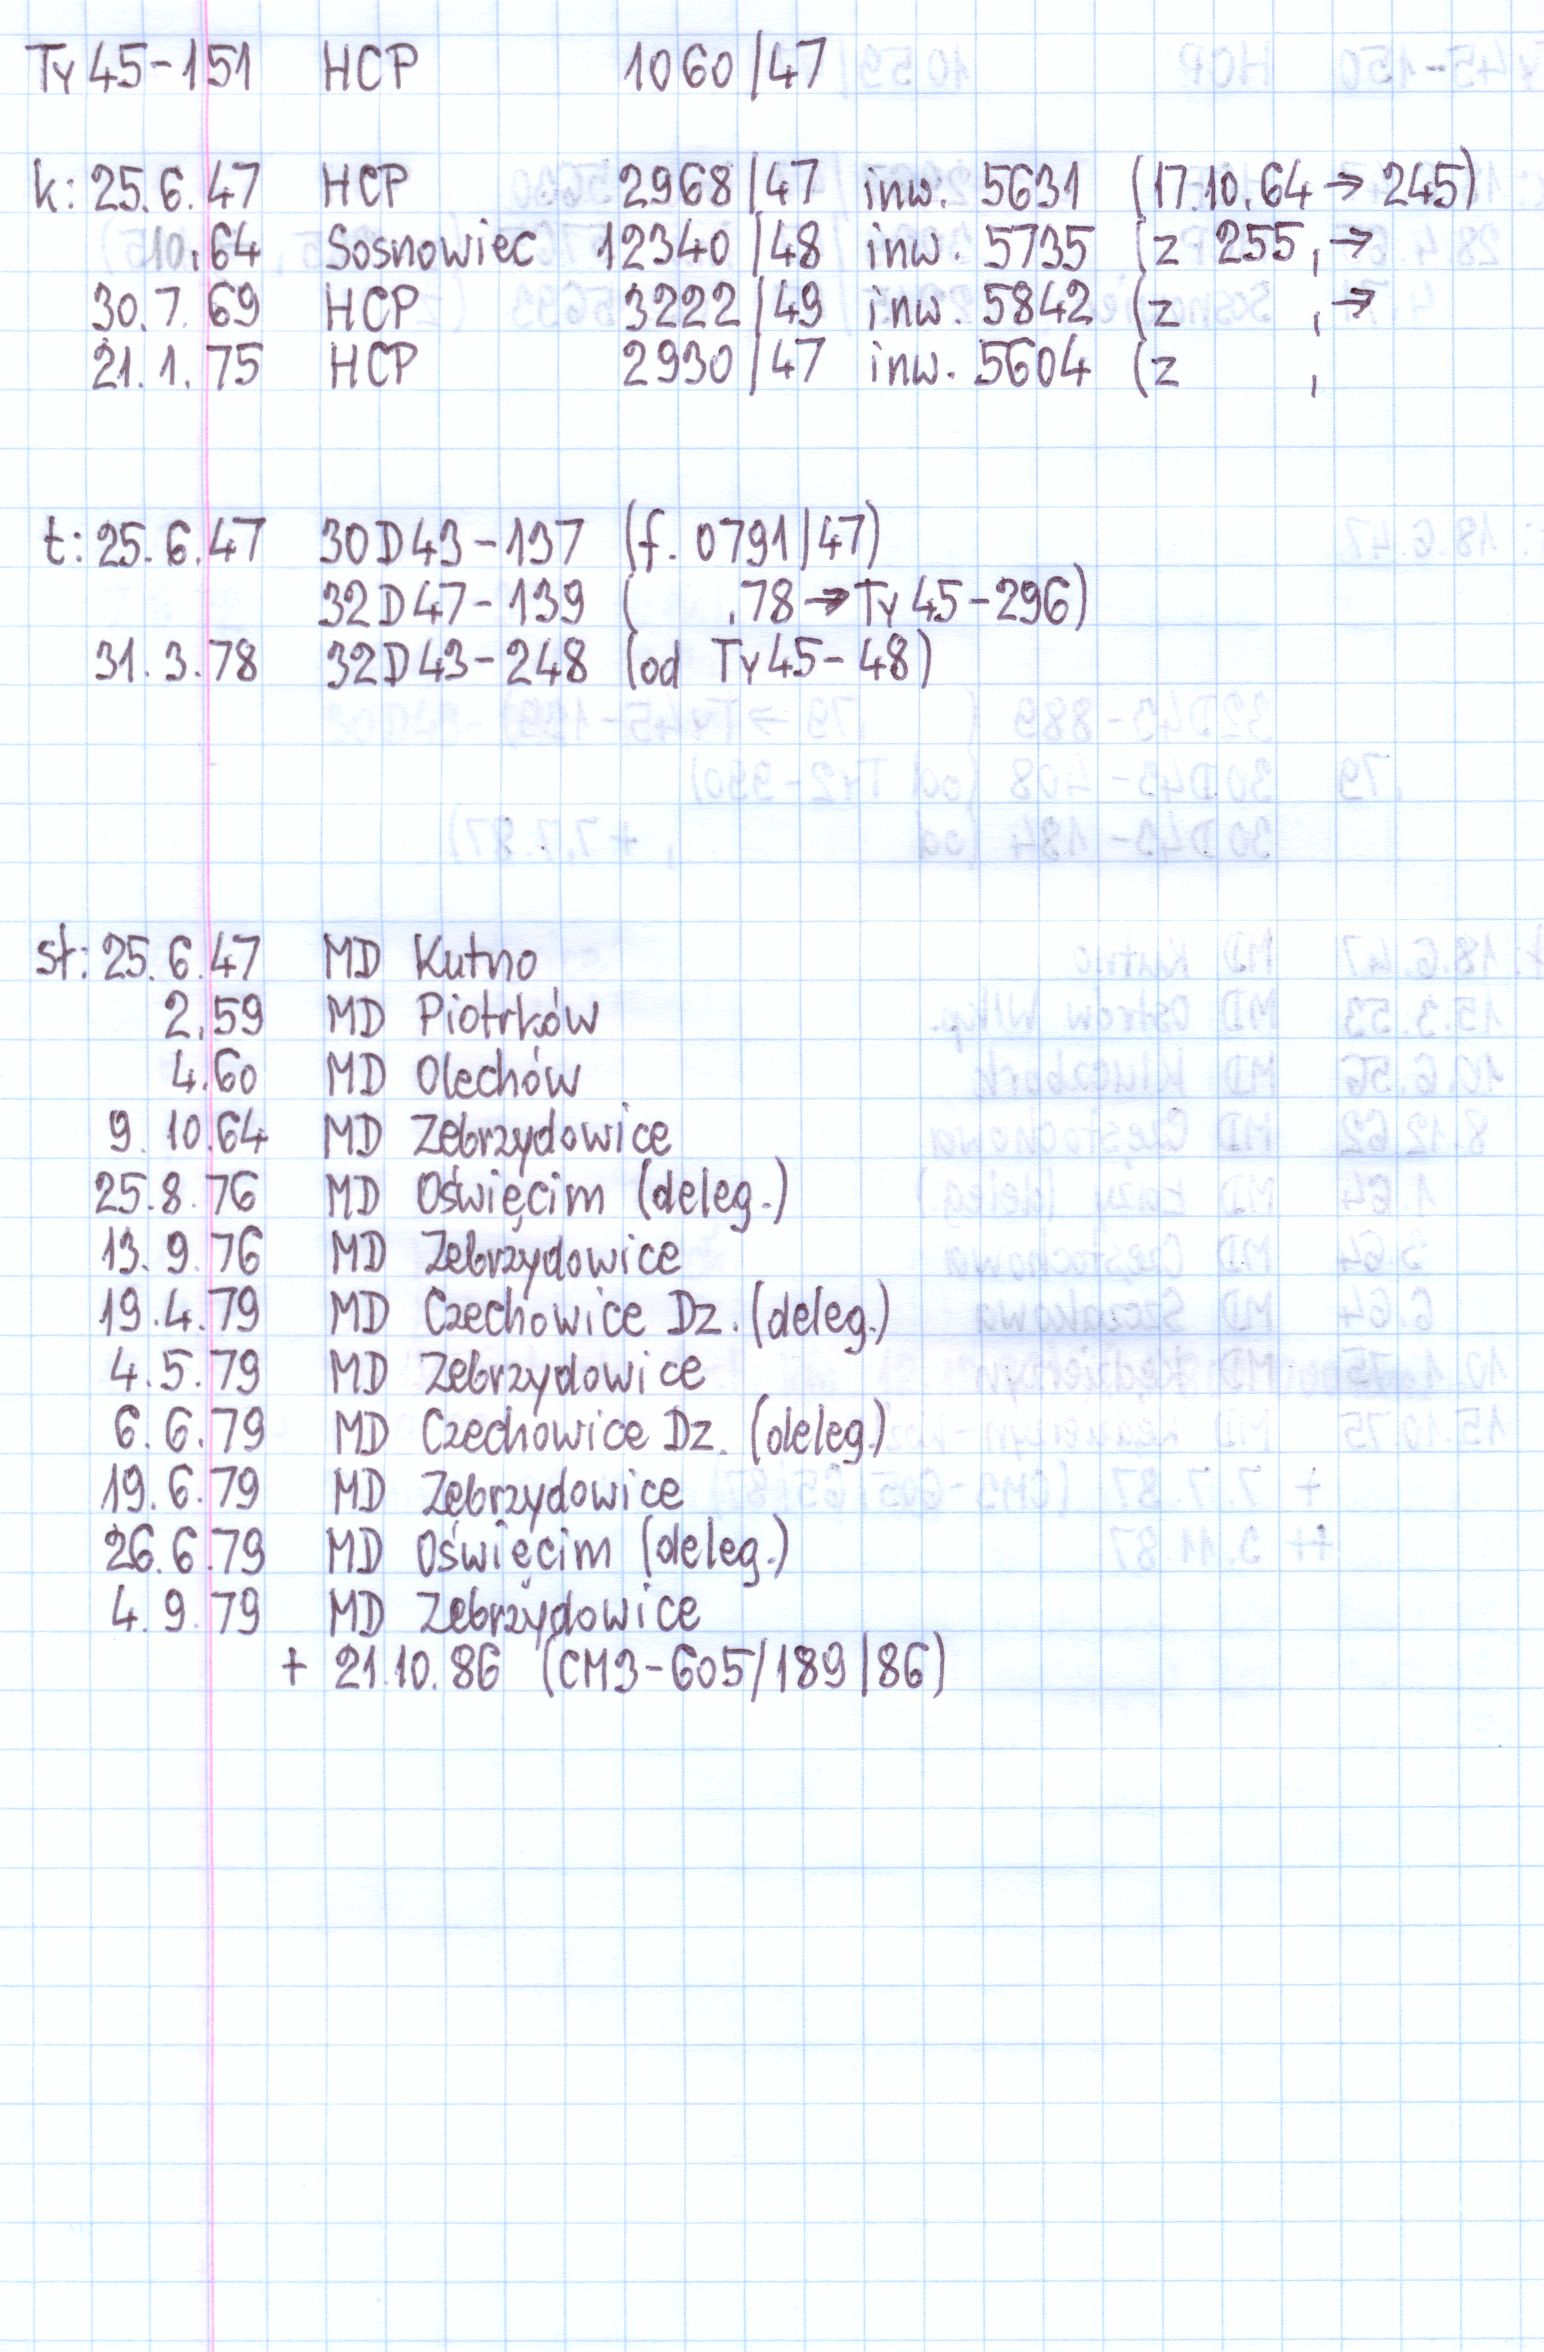 Ty45-151 HCP 1060/47
k: 25.6.47 HCP 2968/47 inw. 5631 (17.10.64 → 245)
10.64 Sosnowiec 12340/48 inw. 5735 (z 255, →
30.7.69 HCP 3222/49 inw. 5842 (z , →
21.1.75 HCP 2930/47 inw. 5604 (z ,
t: 25.6.47 30D43-137 (f. 0791/47)
32D47-139 ( .78 → Ty45-296)
31.3.78 32D43-248 (od Ty45-48)
st: 25.6.47 MD Kutno
2.59 MD Piotrków
4.60 MD Olechów
9.10.64 MD Zebrzydowice
25.8.76 MD Oświęcim (deleg.)
13.9.76 MD Zebrzydowice
19.4.79 MD Czechowice Dz. (deleg.)
4.5.79 MD Zebrzydowice
6.6.79 MD Czechowice Dz. (deleg.)
19.6.79 MD Zebrzydowice
26.6.79 MD Oświęcim (deleg.)
4.9.79 MD Zebrzydowice
+ 21.10.86 (CM3-605/189/86)